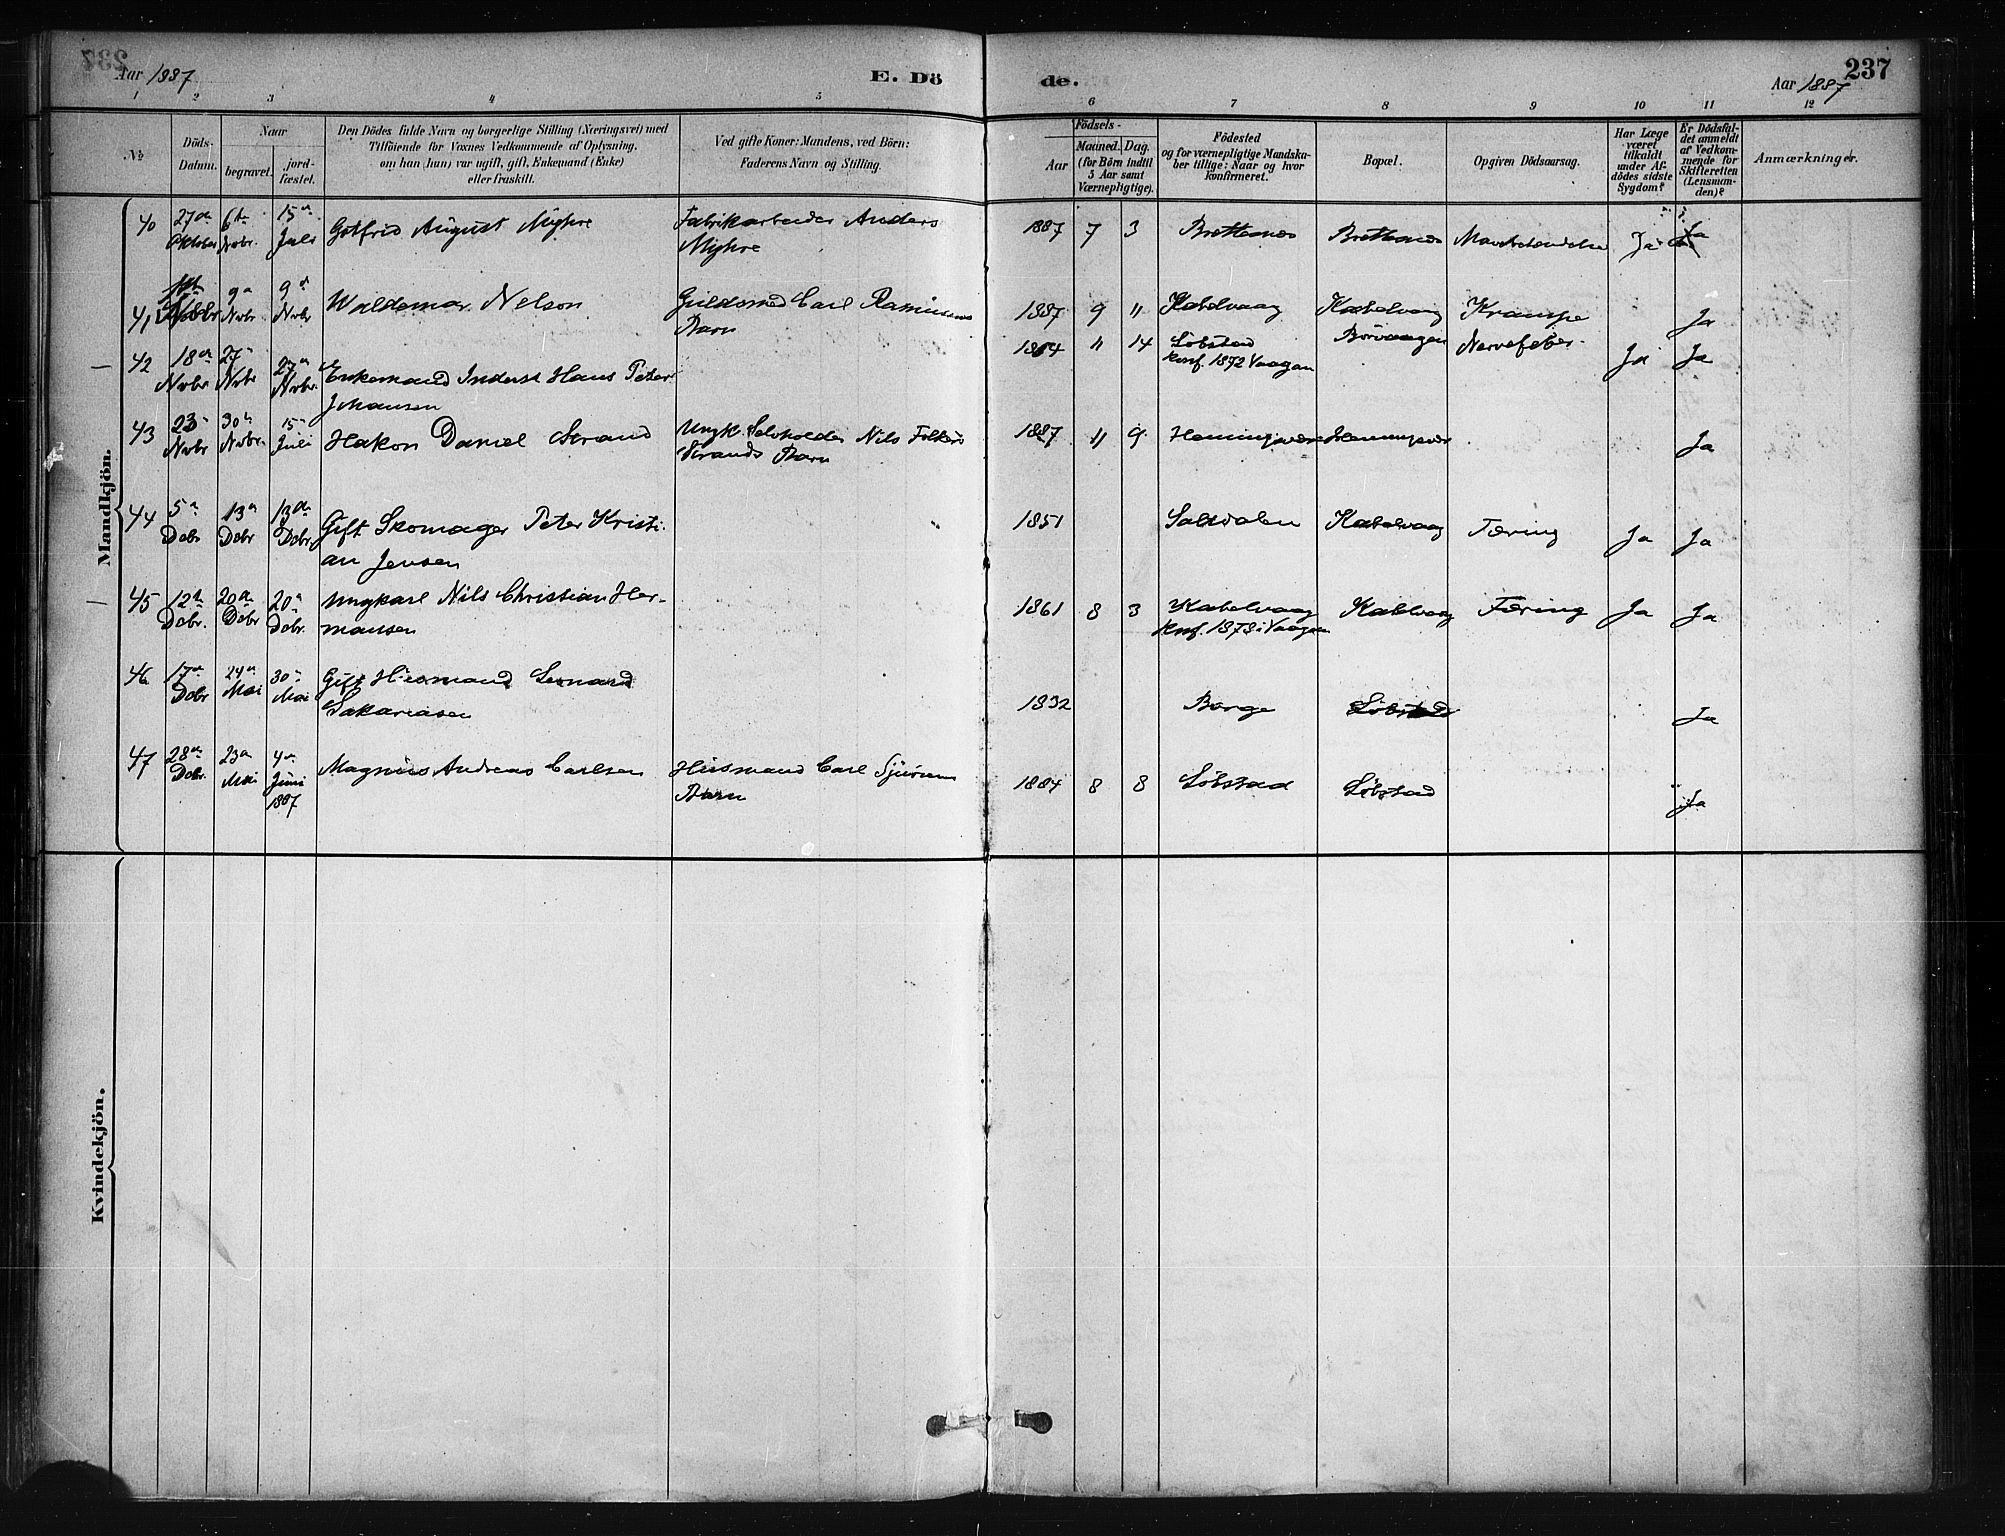 Aar 1887
E. Dö
de.
Aar 1887
237
1 2 3 4 5 6 7 8 9 10 11 12
№
Döds-
Datum.
Naar
begravet.
jord-
fæstet.
Den Dödes fulde Navn og borgerlige Stilling (Næringsvei) med
Tilföiende for Voxnes Vedkommende af Oplysning,
om han (hun) var ugift, gift, Enkemand (Enke)
eller fraskilt.
Ved gifte Koner: Mandens, ved Börn:
Faderens Navn og Stilling.
Födsels-
Aar
Maaned. Dag.
(for Börn indtil
5 Aar samt
Værnepligtige).
Födested
og for værnepligtige Mandska-
ber tillige: Naar og hvor
konfirmeret.
Bopæl.
Opgiven Dödsaarsag.
Har Læge
været
tilkaldt
under Af-
dödes sidste
Sygdom?
Er Dödsfal-
det anmeldt
af Vedkom-
mende for
Skifteretten
(Lensman-
den)?
Anmærkninger.
Mandkjön.
40 27de Oktober 6te Novbr. 15de Juli Gotfrid August Myhre Fabrikarbeider Anders
Myhre
1887 7 3 Brettesnes Brettesnes Ja Ja
41 Novbr 9de Novbr 9de Novbr Waldemar Nelson Guldsmed Carl Rasmussens
Barn
1887 9 11 Kabelvaag Kabelvaag Krampe Ja
42 18de Novbr 27de Novbr 27de Novbr. Enkemand Inderst Hans Peter
Johansen
14 Löbstad Nervefeber. Ja Ja
Konf. 1872 Vaagan
43 23de Novbr 30te Novbr. 15de Juli Hakon Daniel Strand Ungk. Nils
Strands Barn
1887 11 9 Henningsvær Henningsvær Ja
44 5te Dcbr 13de Dcbr 13de Dcbr. Gift Skomager Peter Kristi-
an Jensen
1851 Saltdalen Kabelvaag Tæring Ja Ja
45 12te Dcbr. 20de Dcbr 20de Dcbr. Ungkarl Nils Christian Her-
mansen
1861 8 3 Kabelvaag Kablvaag Tæring Ja Ja
Konf. 1878 i Vaagan
46 17de Dcbr 24de Mai 30te Mai Gift Husmand Leonard
Sakariasen
1832 Borge Löbstad Ja
47 28de Dcbr. 23de Mai 4de Juni 1887 Magnus Andreas Carlsen Husmand Carl
Barn
1884 8 8 Löbstad Löbstad Ja
Kvindekjön.